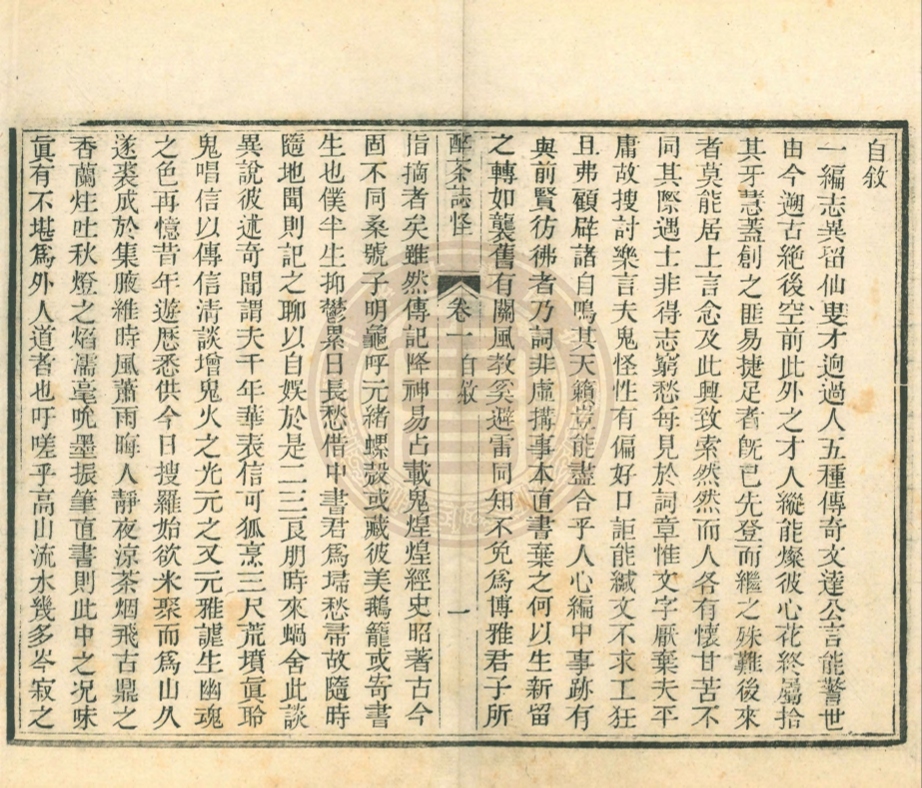 自敘
一編志異留仙叟才逈過人五種傳奇文達公言能警世
由今遡古絶後空前此外之才人縱能燦彼心花終屬拾
其牙慧蓋創之匪易捷足者旣已先登而繼之殊難後來
者莫能居上言念及此興致索然然而人各有懷甘苦不
同其際遇士非得志窮愁每見於詞章惟文字厭棄夫平
庸故搜討樂言夫鬼怪性有偏好口詎能緘文不求工狂
且弗顧辟諸自鳴其天籟豈能盡合乎人心編中事跡有
與前賢彷彿者乃詞非虛搆事本直書棄之何以生新留
之轉如襲舊有關風教奚避雷同知不免爲博雅君子所
醉茶誌怪 卷一 自敘 一
指摘者矣雖然傳記降神易占載鬼煌煌經史昭著古今
固不同桑號子明龜呼元緒螺殼或藏彼美鵝籠或寄書
生也僕半生抑鬱累日長愁借中書君爲埽愁帚故隨時
隨地聞則記之聊以自娛於是二三良朋時來蝸舍此談
異說彼述奇聞謂夫千年華表信可狐烹三尺荒墳眞聆
鬼唱信以傳信淸談增鬼火之光元之又元雅謔生幽魂
之色再憶昔年遊歷悉供今日搜羅始欲米聚而爲山久
遂裘成於集腋維時風蕭雨晦人靜夜涼茶烟飛古鼎之
香蘭炷吐秋燈之焰濡毫吮墨振筆直書則此中之况味
眞有不堪爲外人道者也吁嗟乎高山流水幾多岑寂之